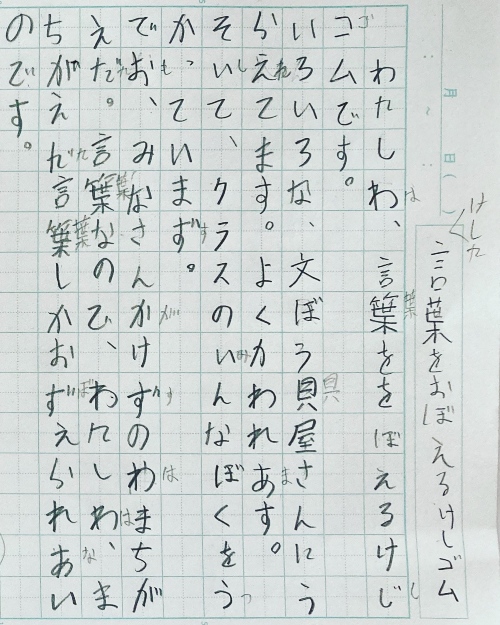 けした
言葉をおぼえるけしゴム
月 日( )
わたしわ、言葉ををぼえるけじ
は 葉 し
コムです。
ゴ
いろいろな、文ぼう貝屋さんにう
具
らえてます。よくかわれあす。
れ ま
そいて、クラスのいんなぼくをう
し み つ
かっていまず。
す
でお、みなさんかけずのわまちが
も が す は
えだ。言葉なのひ、わたしわ、ま
た 葉 は
ちがえだ言葉しかおずえられあい
た 葉 ぼ な
のです。